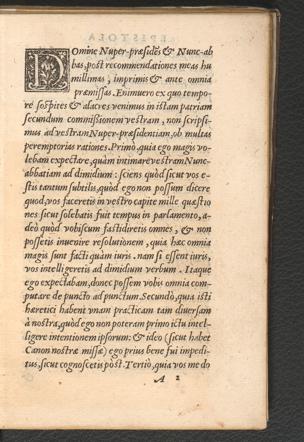 DOmine Nuper-præsidẽs & Nunc-ab
bas, post recommendationes meas hu
millimas, imprimis & ante omnia
præmissas. Enimuero ex quo tempo-
re sospites & alacres venimus in istam patriam
secundum commißionem vestram, non scripsi-
mus ad vestram Nuper-præsidentiam, ob multas
peremptorias rationes. Primò, quia ego magis vo-
lebam expectare, quàm intimare vestram Nunc-
abbatiam ad dimidium: sciens quòd sicut vos e-
stis tantum subtilis, quòd ego non possum dicere
quod, vos faceretis in vestro capite mille quæstio
nes sicut solebatis fuit tempus in parlamento, a-
deò quòd vobiscum fastidiretis omnes, & non
possetis inuenire resolutionem, quia hæc omnia
magis sunt facti quàm iuris. nam si essent iuris,
vos intelligeretis ad dimidium verbum. Itaque
ego expectabam, donec possem vobis omnia com-
putare de puncto ad punctum. Secundò, quia isti
hæretici habent vnam practicam tam diuersam
à nostra, quòd ego non poteram primo ictu intel-
ligere intentionem ipsorum: & ideo (sicut habet
Canon nostræ missæ) ego prius bene fui impedi-
tus, sicut cognoscetis pòst. Tertiò, quia vos me do
A 2